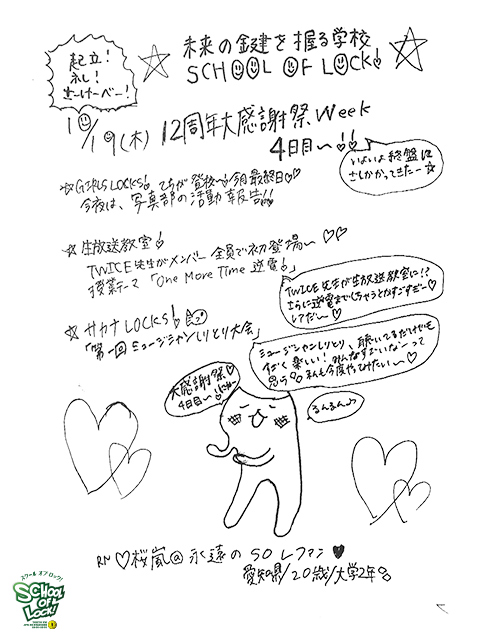 起立!
礼!
さーけーべー!
未来の鍵を握る学校
SCHOOL OF LOCK!
10/19(木) 12周年大感謝祭Week
4日目〜!!
いよいよ終盤に
さしかかってきたー☆
☆GIRLS LOCKS! てちが登校〜!今月最終日♡♡
今夜は、写真部の活動報告!!
☆生放送教室!
TWICE先生がメンバー全員で初登場〜♡♡
授業テーマ「One More Time 逆電!」
TWICE先生が生放送教室に!?
さらに逆電までしちゃうとかすごすぎー♡
☆サカナLOCKS!
「第一回ミュージシャンしりとり大会」
ミュージシャンしりとり、聴いてるだけでも
すごく楽しい!みんなすごいな〜って
思う。私も今度やってみたい〜♡
大感謝祭♡
4日目〜!
るんるん♪
RN ♡桜嵐@永遠のSOLファン♥
愛知県/20歳/大学2年♀
スクール オブ ロック!
SCHOOL OF LOCK!